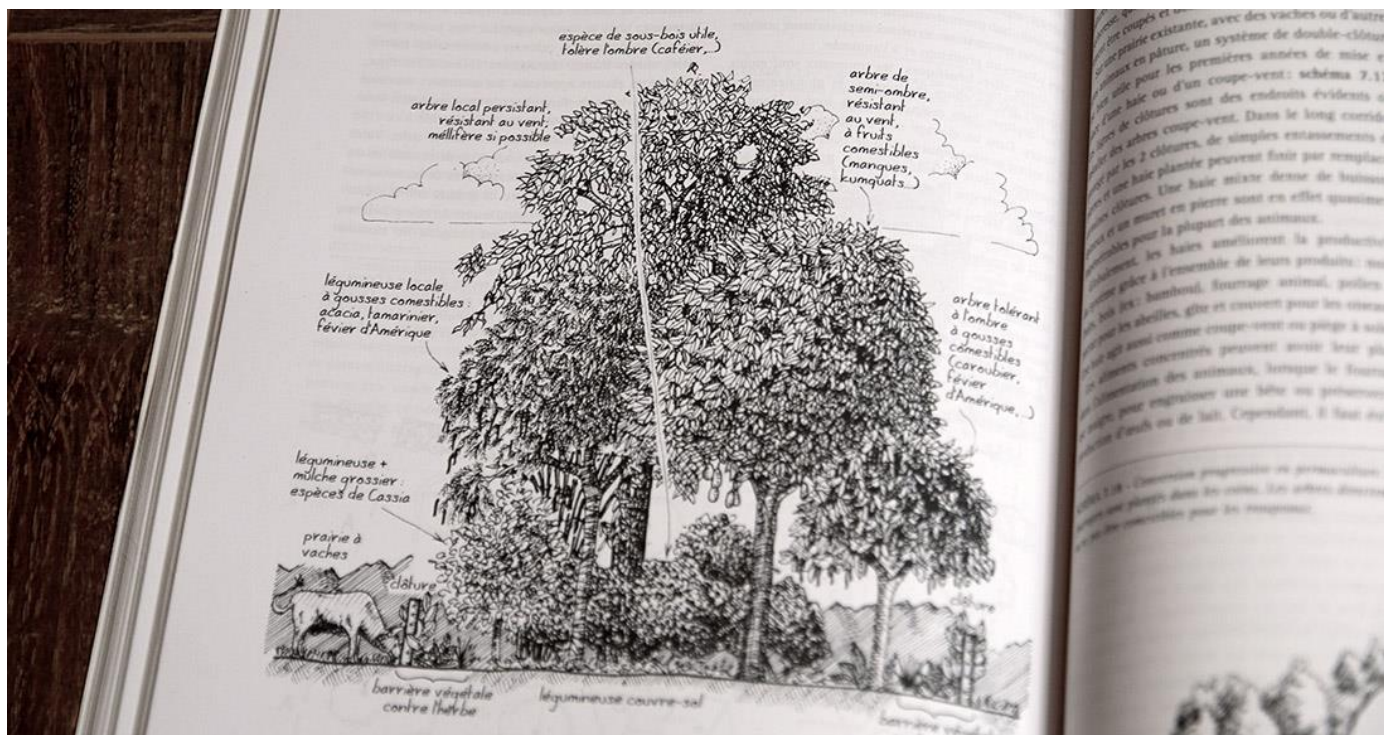 espèce de sous-bois utile,
tolère l'ombre (caféier,...)
arbre local persistant,
résistant au vent,
méllifère si possible
arbre de
semi-ombre,
résistant
au vent,
à fruits
comestibles
(mangues,
kumquats...)
légumineuse locale
à gousses comestibles :
acacia, tamarinier,
févier d'Amérique
arbre tolérant
à l'ombre
à gousses
comestibles
(caroubier,
févier
d'Amérique,...)
légumineuse +
mulche grossier :
espèces de Cassia
prairie à
vaches
clôture
clôture
barrière végétale
contre l'herbe
légumineuse couvre-sol
barrière
être coupés et
sur une prairie existante, avec des vaches ou d'autre
animaux en pâture, un système de double-clôtur
utile pour les premières années de mise e
d'une haie ou d'un coupe-vent : schéma 7.1
de clôtures sont des endroits évidents
des arbres coupe-vent. Dans le long corrid
par les 2 clôtures, de simples entassements
et une haie plantée peuvent finir par remplac
clôtures. Une haie mixte dense de buisson
et un muret en pierre sont en effet quasime
pour la plupart des animaux.
les haies améliorent la productiv
grâce à l'ensemble de leurs produits :
bambou, fourrage animal, pollen
pour les abeilles, gîte et couvert pour les oiseau
agit aussi comme coupe-vent ou piège à
aliments concentrés peuvent avoir leur
dans l'alimentation des animaux, lorsque le fourra
pour engraisser une bête ou
d'œufs ou de lait. Cependant, il faut